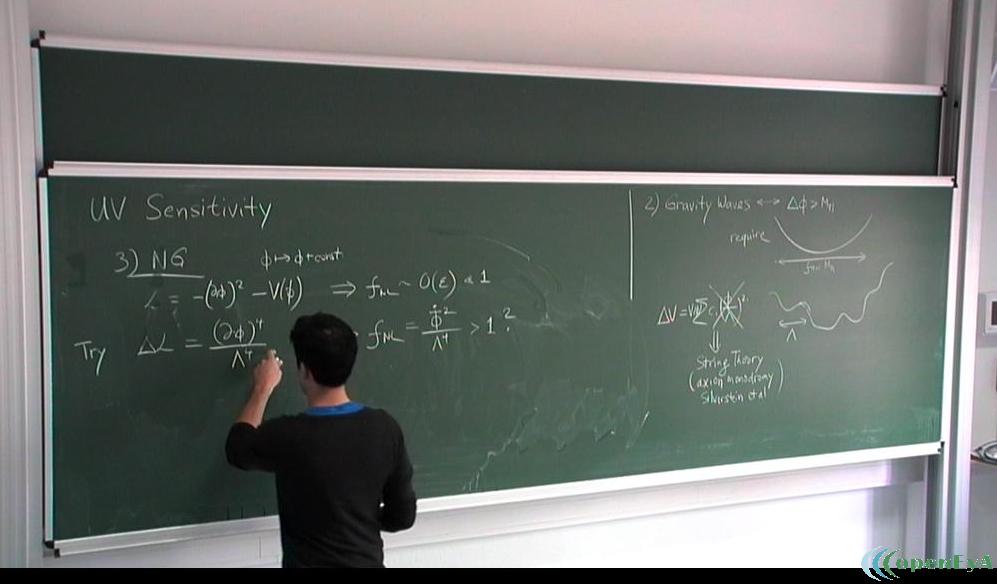 UV Sensitivity
3) NG
ϕ ↦ ϕ + const
L = -(∂ϕ)² - V(ϕ) ⇒ f_NL ~ O(ε) << 1
Try ΔL = (∂ϕ)⁴ / Λ⁴
f_NL = ϕ̇² / Λ⁴ > 1 ?
2) Gravity Waves ↔ Δϕ > M_Pl
require
ΔV =
Λ
String Theory
(axion monodromy
Silverstein et al)
openEyA